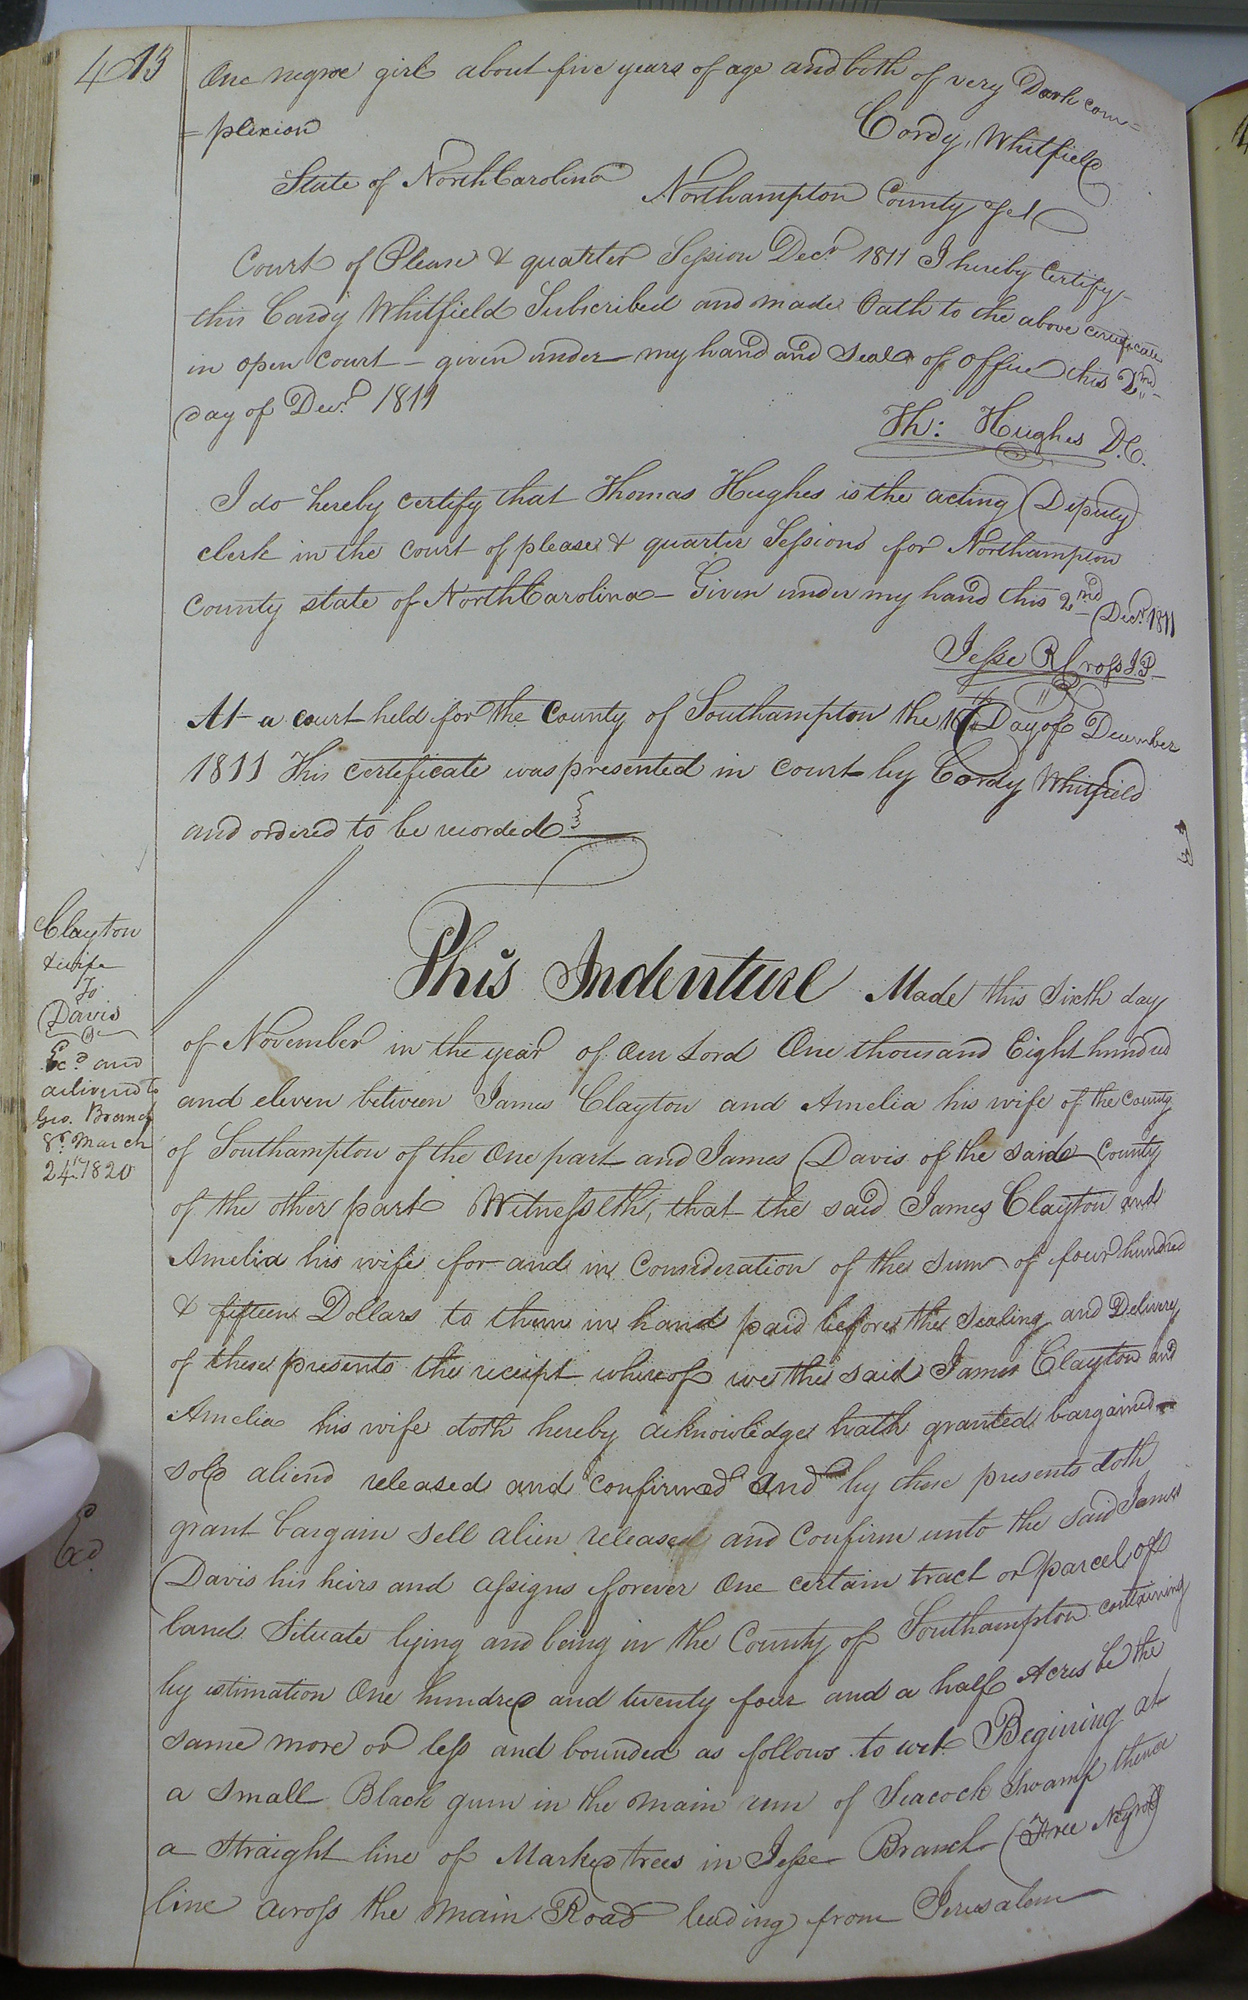 413
One negroe girl about five years of age and both of very Dark com=
=plexion
Cordy Whitfield
State of North Carolina
Northampton County
Court of Please & quarter Session Decr 1811 I hereby Certify
this Cardy Whitfield Subscribed and made Oath to the above certificate
in open Court – given under my hand and Seal of Office this 2nd
day of Decr 1811
Th: Hughes D.C.
I do hereby certify that Thomas Hughes is the acting Deputy
clerk in the court of please & quarter Sessions for Northampton
County state of North Carolina – Given under my hand this 2nd Decr 1811
Jesse R Cross J.P.
At a court held for the County of Southampton the Day of December
1811 This certificate was presented in court by Cordy Whitfield
and ordered to be recorded
Clayton
& wife
To
Davis
Exd and
delivered to
Geo. Branch
Sr. March
24th 1820
Exd
This Indenture Made this Sixth day
of November in the year of our Lord One thousand Eight hundred
and eleven between James Clayton and Amelia his wife of the County
of Southampton of the One part and James Davis of the said County
of the other part Witnesseth, that the said James Clayton and
Amelia his wife for and in Consideration of the Sum of four hundred
& fifteen Dollars to them in hand paid before the Sealing and Delivery
of these presents the receipt whereof we the said James Clayton and
Amelia his wife doth hereby acknowledge hath granted bargained
sold aliend released and confirmed And by these presents doth
grant bargain sell alien released and Confirm unto the said James
Davis his heirs and assigns forever One certain tract or parcel of
land Situate lying and being in the County of Southampton containing
by estimation One hundred and twenty four and a half Acres be the
same more or less and bounded as follows to wit Begining at
a Small Black gum in the main run of Seacock Swamp thence
a Straight line of Marked trees in Jesse Branch (Free Negroe)
line across the Main Road leading from Jerusalem